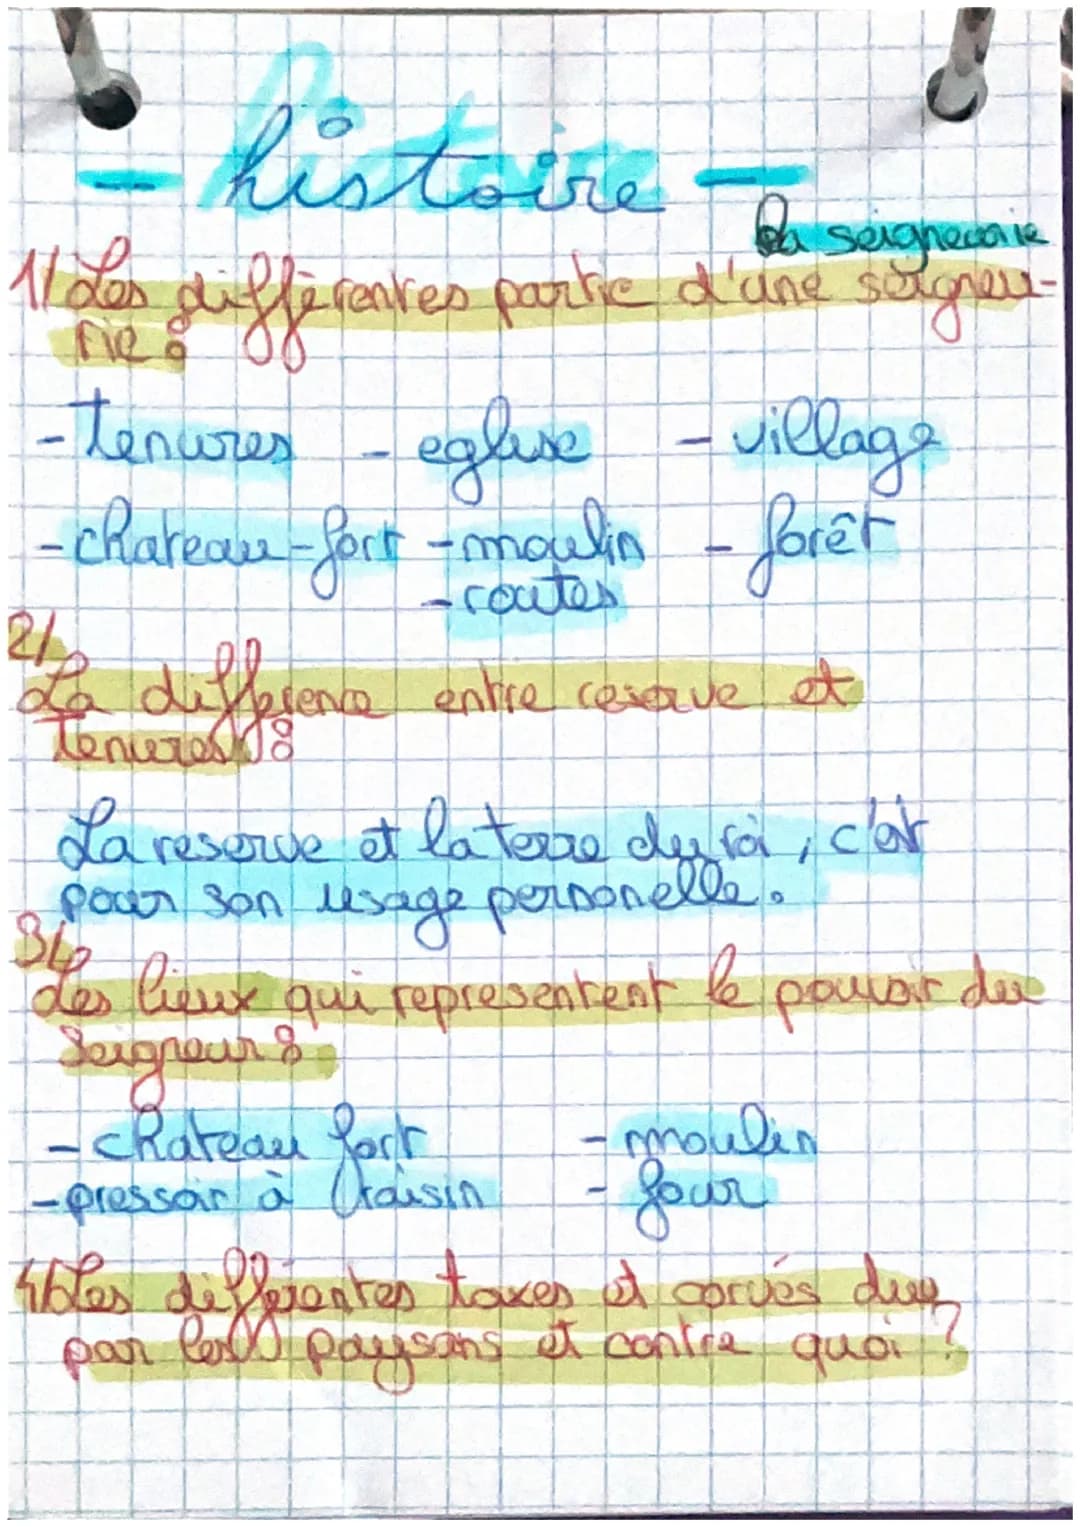 - histoire -
La seigneurie
1/ Les différentes partie d'une seigneu-
rie :
- tenures - eglise - village
- chateau-fort - moulin - forêt
- routes
2/
La difference entre reserve et
tenures :
La reserve et la terre du roi, c'est
pour son usage personelle.
3/
Les lieux qui representent le pouvoir du
Seigneur :
- chateau fort - moulin
- pressoir à raisin - four
4/ Les différentes taxes et corvés dues
par les paysans et contre quoi ?